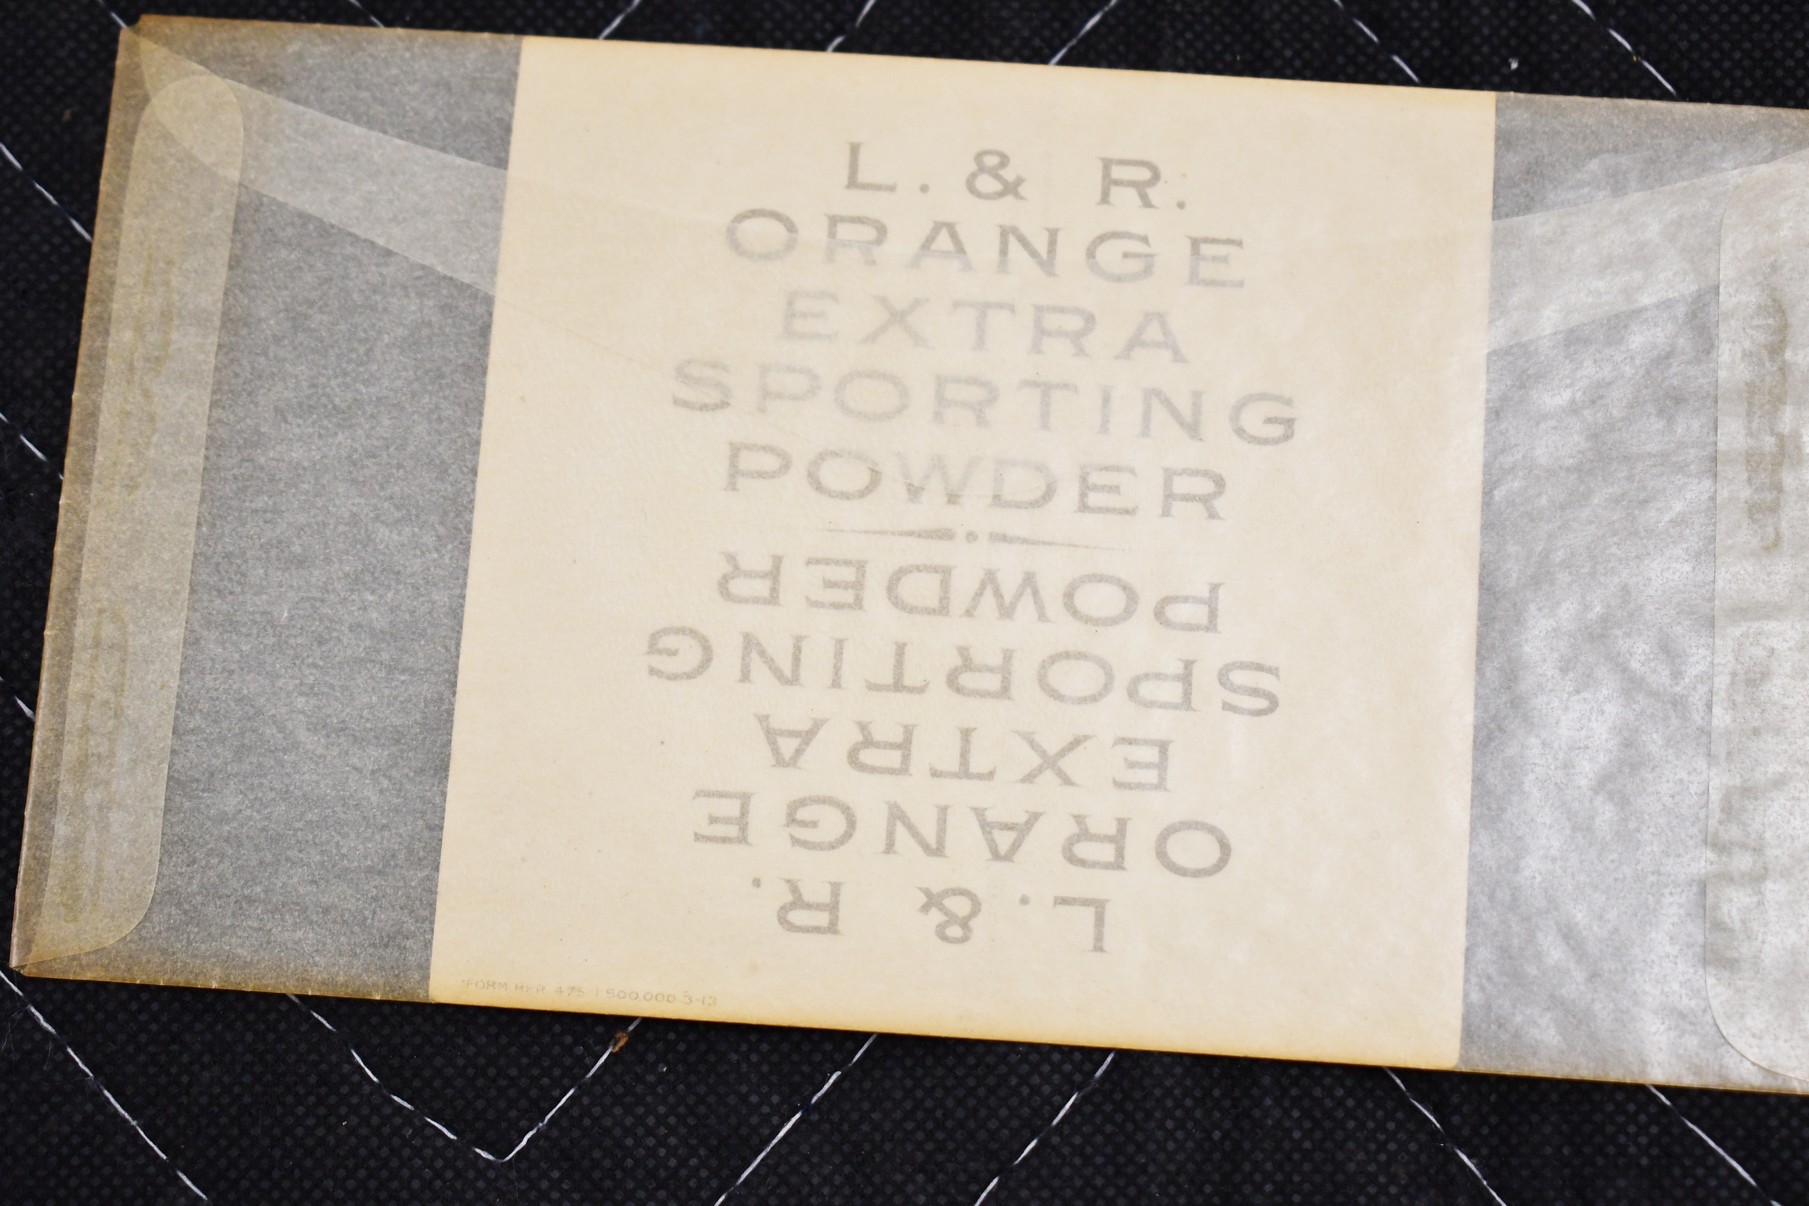 L. & R.
ORANGE
EXTRA
SPORTING
POWDER
POWDER
SPORTING
EXTRA
ORANGE
L. & R.
FORM MFR. 475 1500,000 3-13